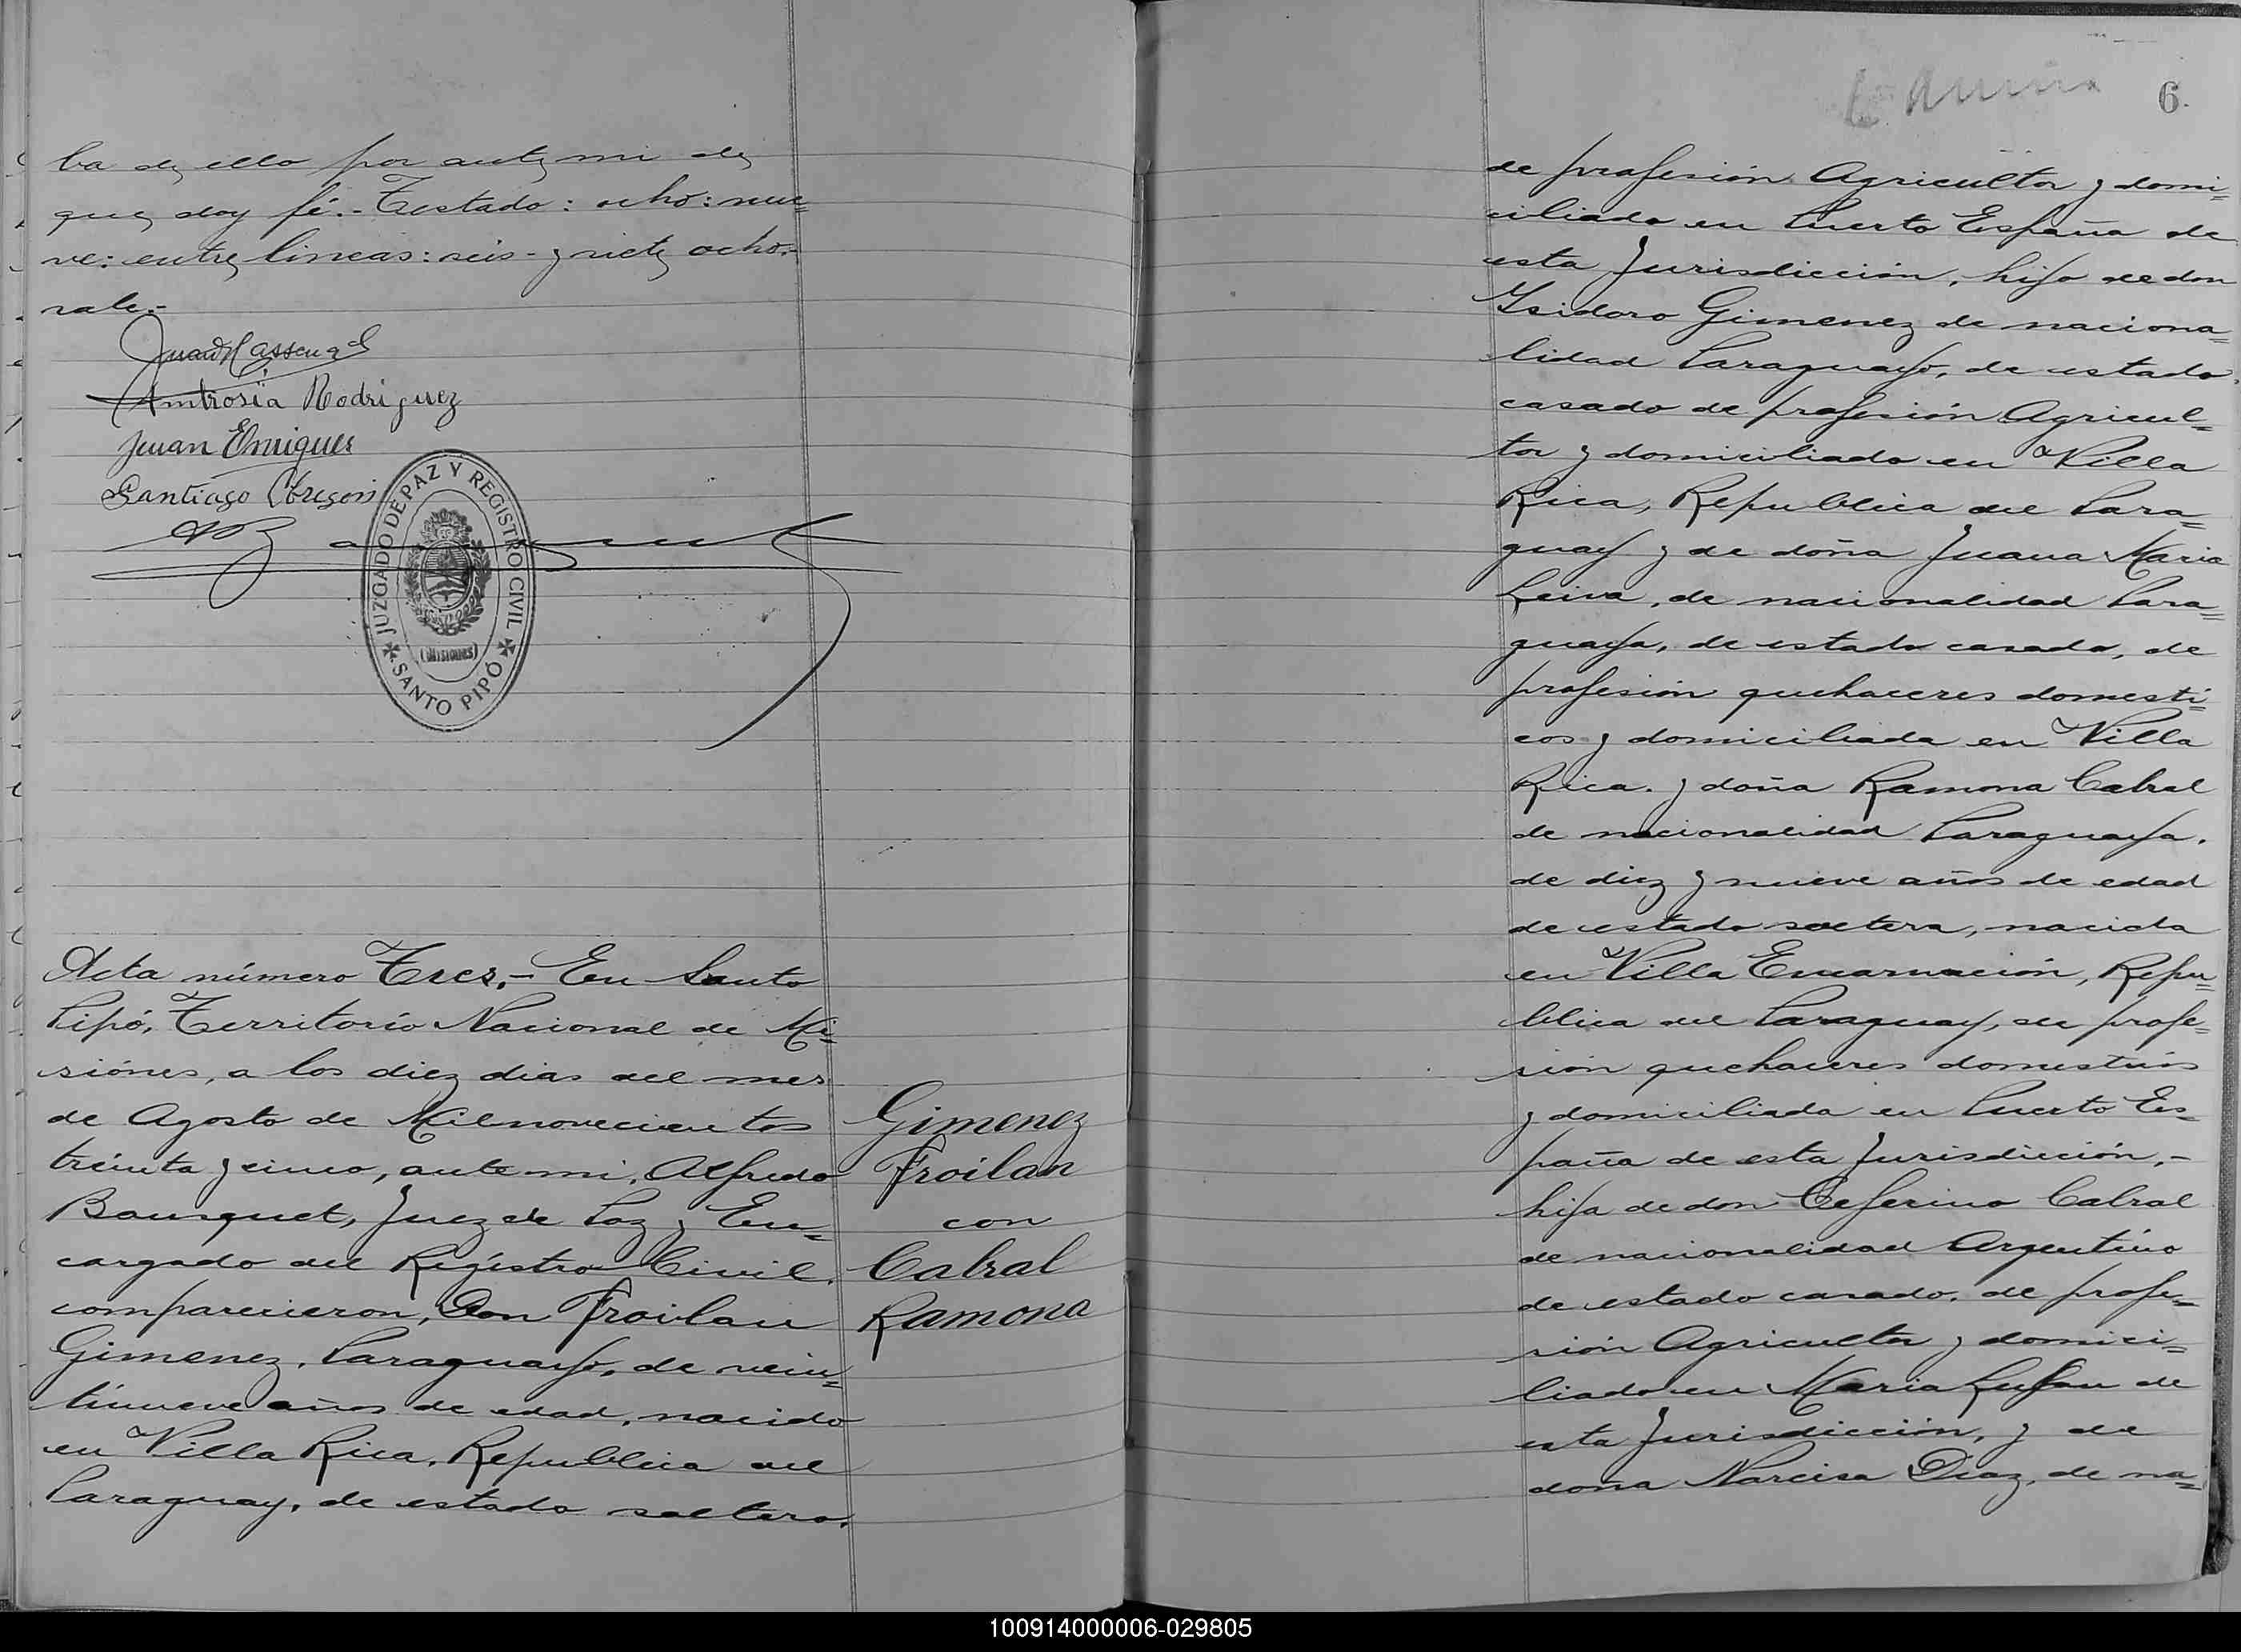 ba de ello por ante mi de
que doy fé.- Testado: ocho: nue=
ve: entre lineas: seis - y siete ocho.-
vale.-
Ambrosia Rodriguez
Juan Enriques
Santiago Obregon
JUZGADO DE PAZ Y REGISTRO CIVIL
(MISIONES)
SANTO PIPÓ
Acta número Tres.- En Santo
Pipó, Territorio Nacional de Mi=
siónes, a los diez dias del mes
de Agosto de Mil novecientos
treinta y cinco, ante mi, Alfredo
Bousquet, Juez de Paz y En=
cargado del Registro Civil,
comparecieron, Don Froilan
Gimenez, Paraguayo, de vein=
tinueve años de edad, nacido
en Villa Rica, Republica del
Paraguay, de estado soltero,
Gimenez
Froilan
con
Cabral
Ramona
6.
de profesión Agricultor y domi=
ciliado en Puerto España de
esta Jurisdicción, hijo de don
Ysidoro Gimenez de naciona=
lidad Paraguayo, de estado
casado de profesión Agricul=
tor y domiciliado en Villa
Rica, Republica del Para=
guay y de doña Juana Maria
Leiva, de nacionalidad Para=
guaya, de estado casada, de
profesión quehaceres domesti=
cos y domiciliada en Villa
Rica. y doña Ramona Cabral
de nacionalidad Paraguaya,
de diez y nueve años de edad
de estado soltera, nacida
en Villa Encarnación, Repu=
blica del Paraguay, de profe=
sión quehaceres domesticos
y domiciliada en Puerto Es=
paña de esta Jurisdicción,-
hija de don Ceferino Cabral
de nacionalidad Argentino
de estado casado, de profe=
sión Agricultor y domici=
liado en Maria Lujan de
esta Jurisdicción, y de
doña Narcisa Diaz, de na=
100914000006-029805